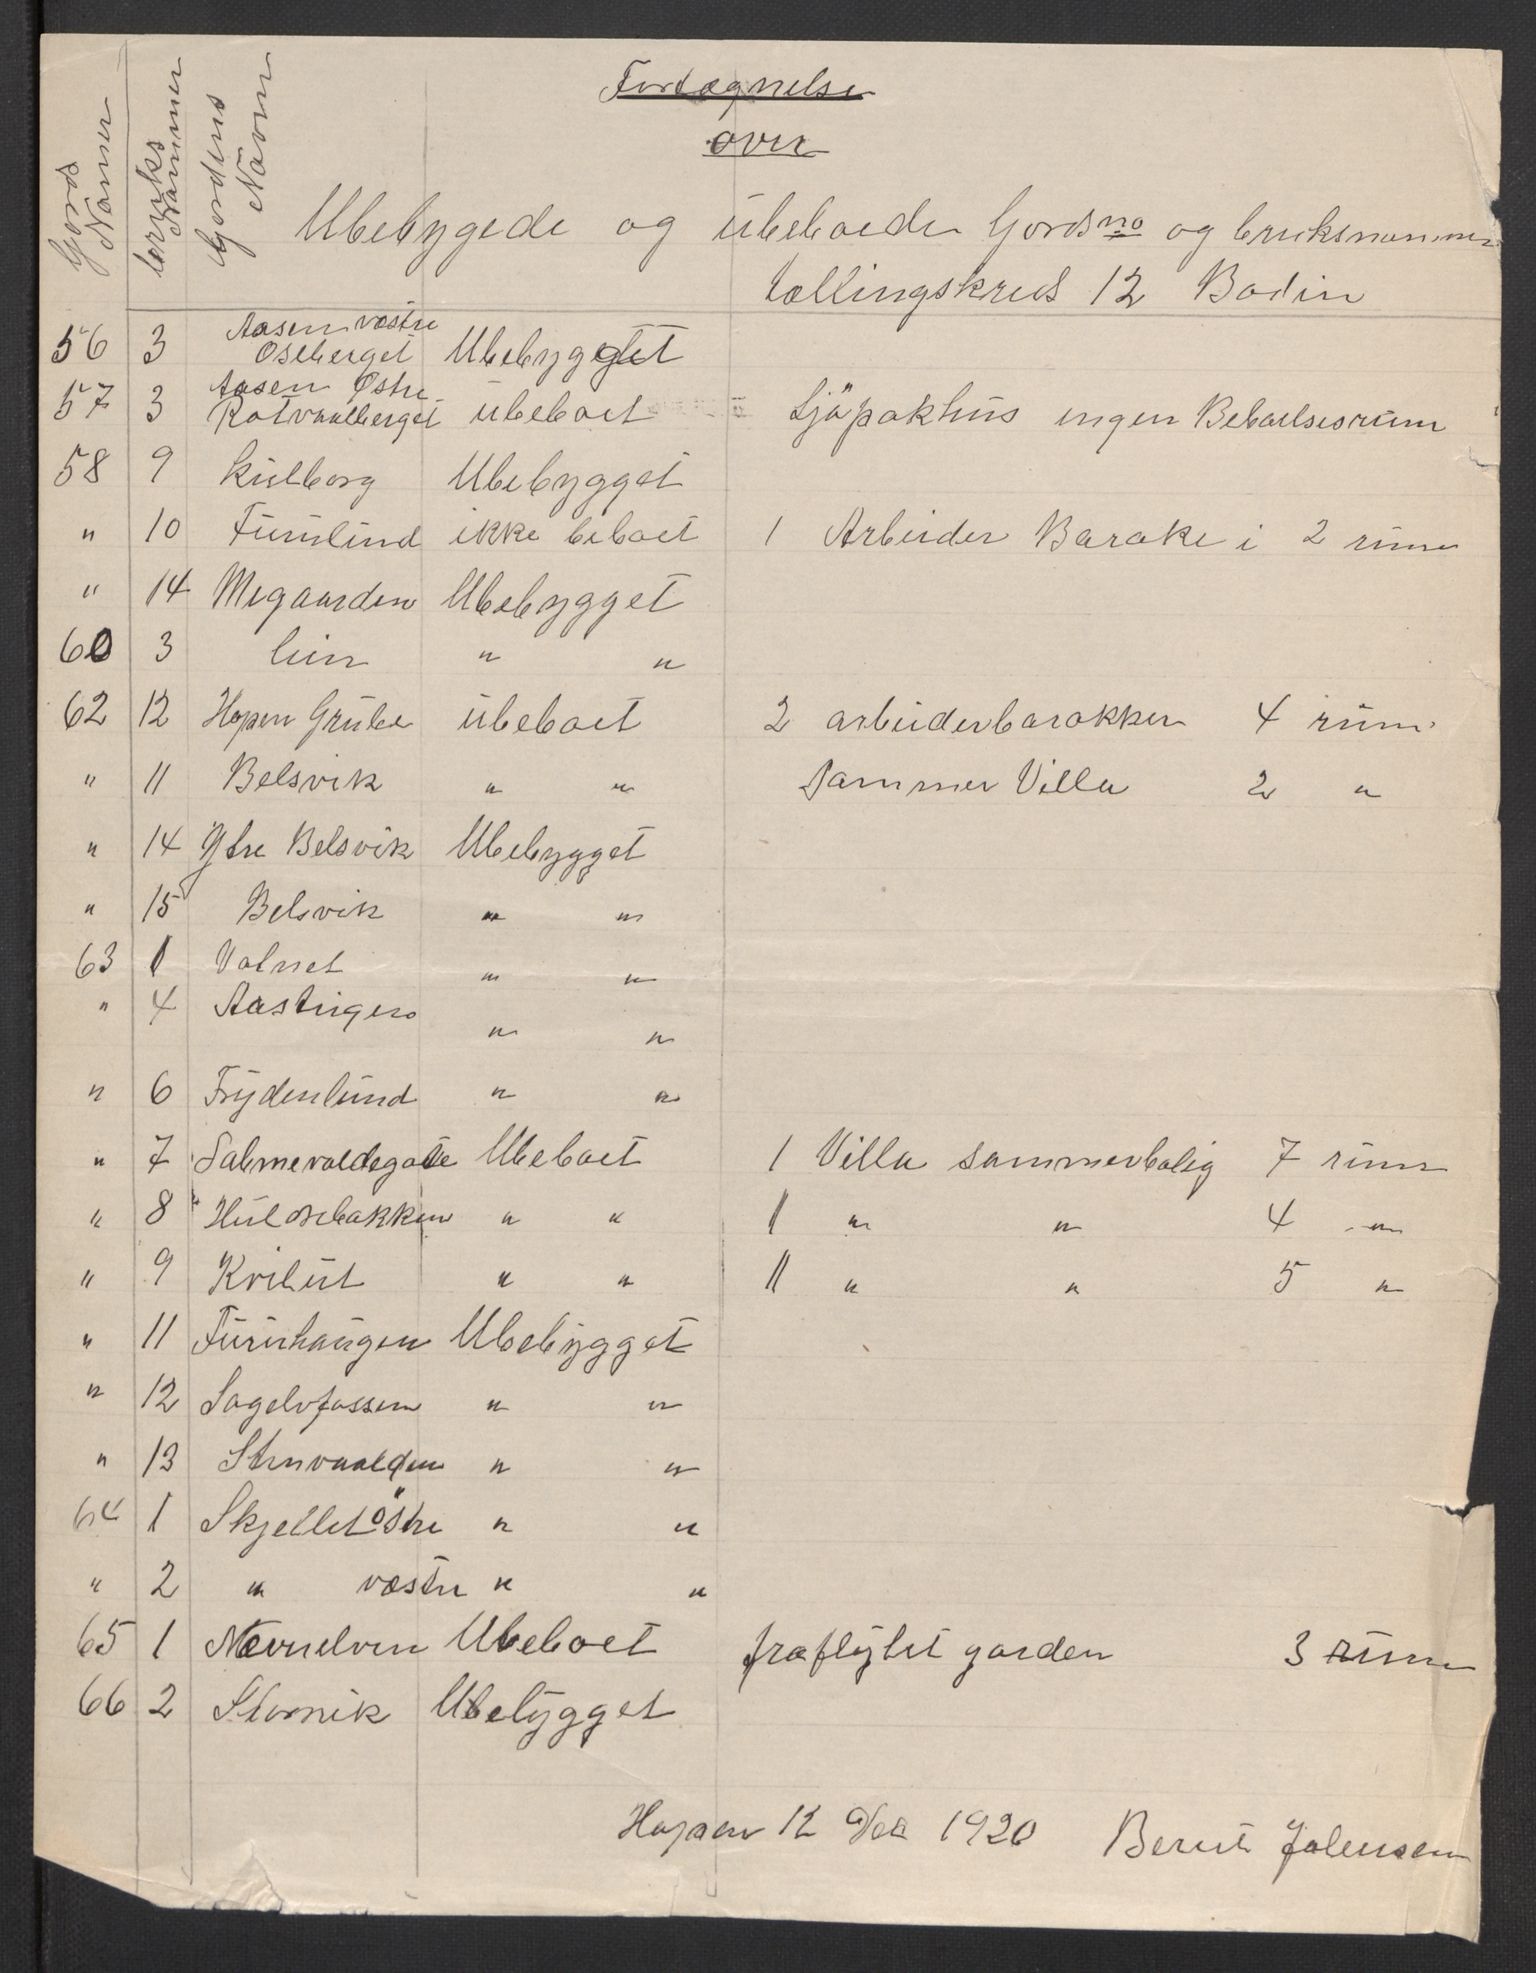 Fortægnelse
over
Ubebygede og ubeboede Gords no og bruksnummer
tællingskreds 12 Bodin
Gords Numer
bruks Nummer
Gordens Navn
56 3 Aasen væstre Oseberget Ubebygget
57 3 Aasen Østre Rotvaalberget ubeboet Sjöpakhus ingen Beboelsesrum
58 9 Kielborg Ubebygget
" 10 Furulund ikke beboet 1 Arbeider Barake i 2 rum
" 14 Megaarden Ubebygget
60 3 Lien " "
62 12 Hopen Grube ubeboet 2 arbeiderbarakker 4 rum
" 11 Belsvik " " Sommer Villa 2 "
" 14 Ytre Belsvik Ubebygget
" 15 Belsvik " "
63 1 Valnet " "
" 4 Aastingen " "
" 6 Frydenlund " "
" 7 Ubeboet 1 Villa sommerbolig 7 rum
" 8 Huldrebakken " " 1 " " 4 "
" 9 Kvilut " " 1 " " 5 "
" 11 Furuhaugen Ubebygget
" 12 Sagelvfossen " "
" 13 Stenvaalden " "
64 1 Skjellet östre " "
" 2 " væstre " "
65 1 Næverelven Ubeboet fraflyttet garden 3 rum
66 2 Storvik Ubebygget
Hopen 12 Des 1920 Bernt Johensen